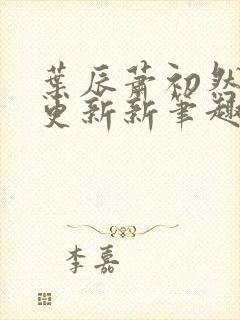 葉辰蕭初然
更新新筆趣
李嘉